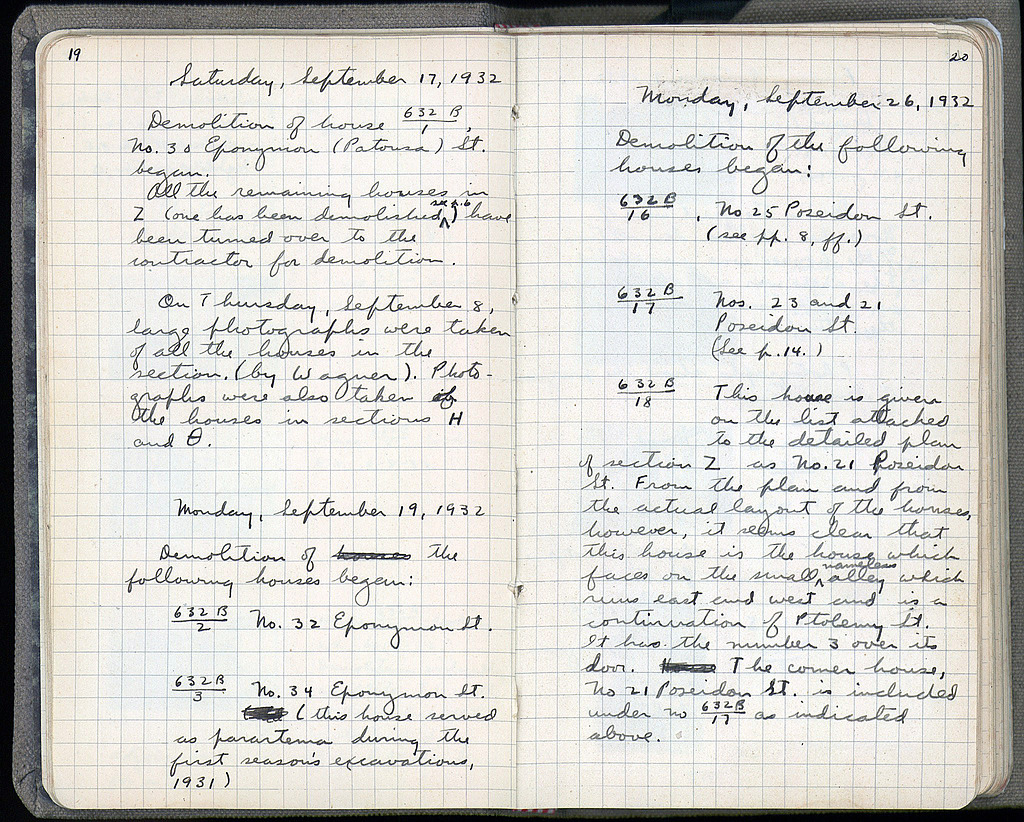 19
Saturday, September 17, 1932
Demolition of house 632 B/1,
No. 30 Eponymon (Patousa) St.
began.
All the remaining houses in
Z (one has been demolished, see p. 6) have
been turned over to the
contractor for demolition.
On Thursday, September 8,
large photographs were taken
of all the houses in the
section. (by Wagner). Photo-
graphs were also taken of
the houses in sections H
and Θ.
Monday, September 19, 1932
Demolition of houses the
following houses began:
632 B/2 No. 32 Eponymon St.
632 B/3 No. 34 Eponymon St.
(this house served
as parartema during the
first season's excavations,
1931)
20
Monday, September 26, 1932
Demolition of the following
houses began:
632 B/16, No 25 Poseidon St.
(see pp. 8, ff.)
632 B/17 Nos. 23 and 21
Poseidon St.
(See p. 14.)
632 B/18 This house is given
on the list attached
to the detailed plan
of section Z as No. 21 Poseidon
St. From the plan and from
the actual layout of the houses,
however, it seems clear that
this house is the house which
faces on the small nameless alley which
runs east and west and is a
continuation of Ptolemy St.
It has the number 3 over its
door. The corner house,
No 21 Poseidon St. is included
under no 632 B/17 as indicated
above.